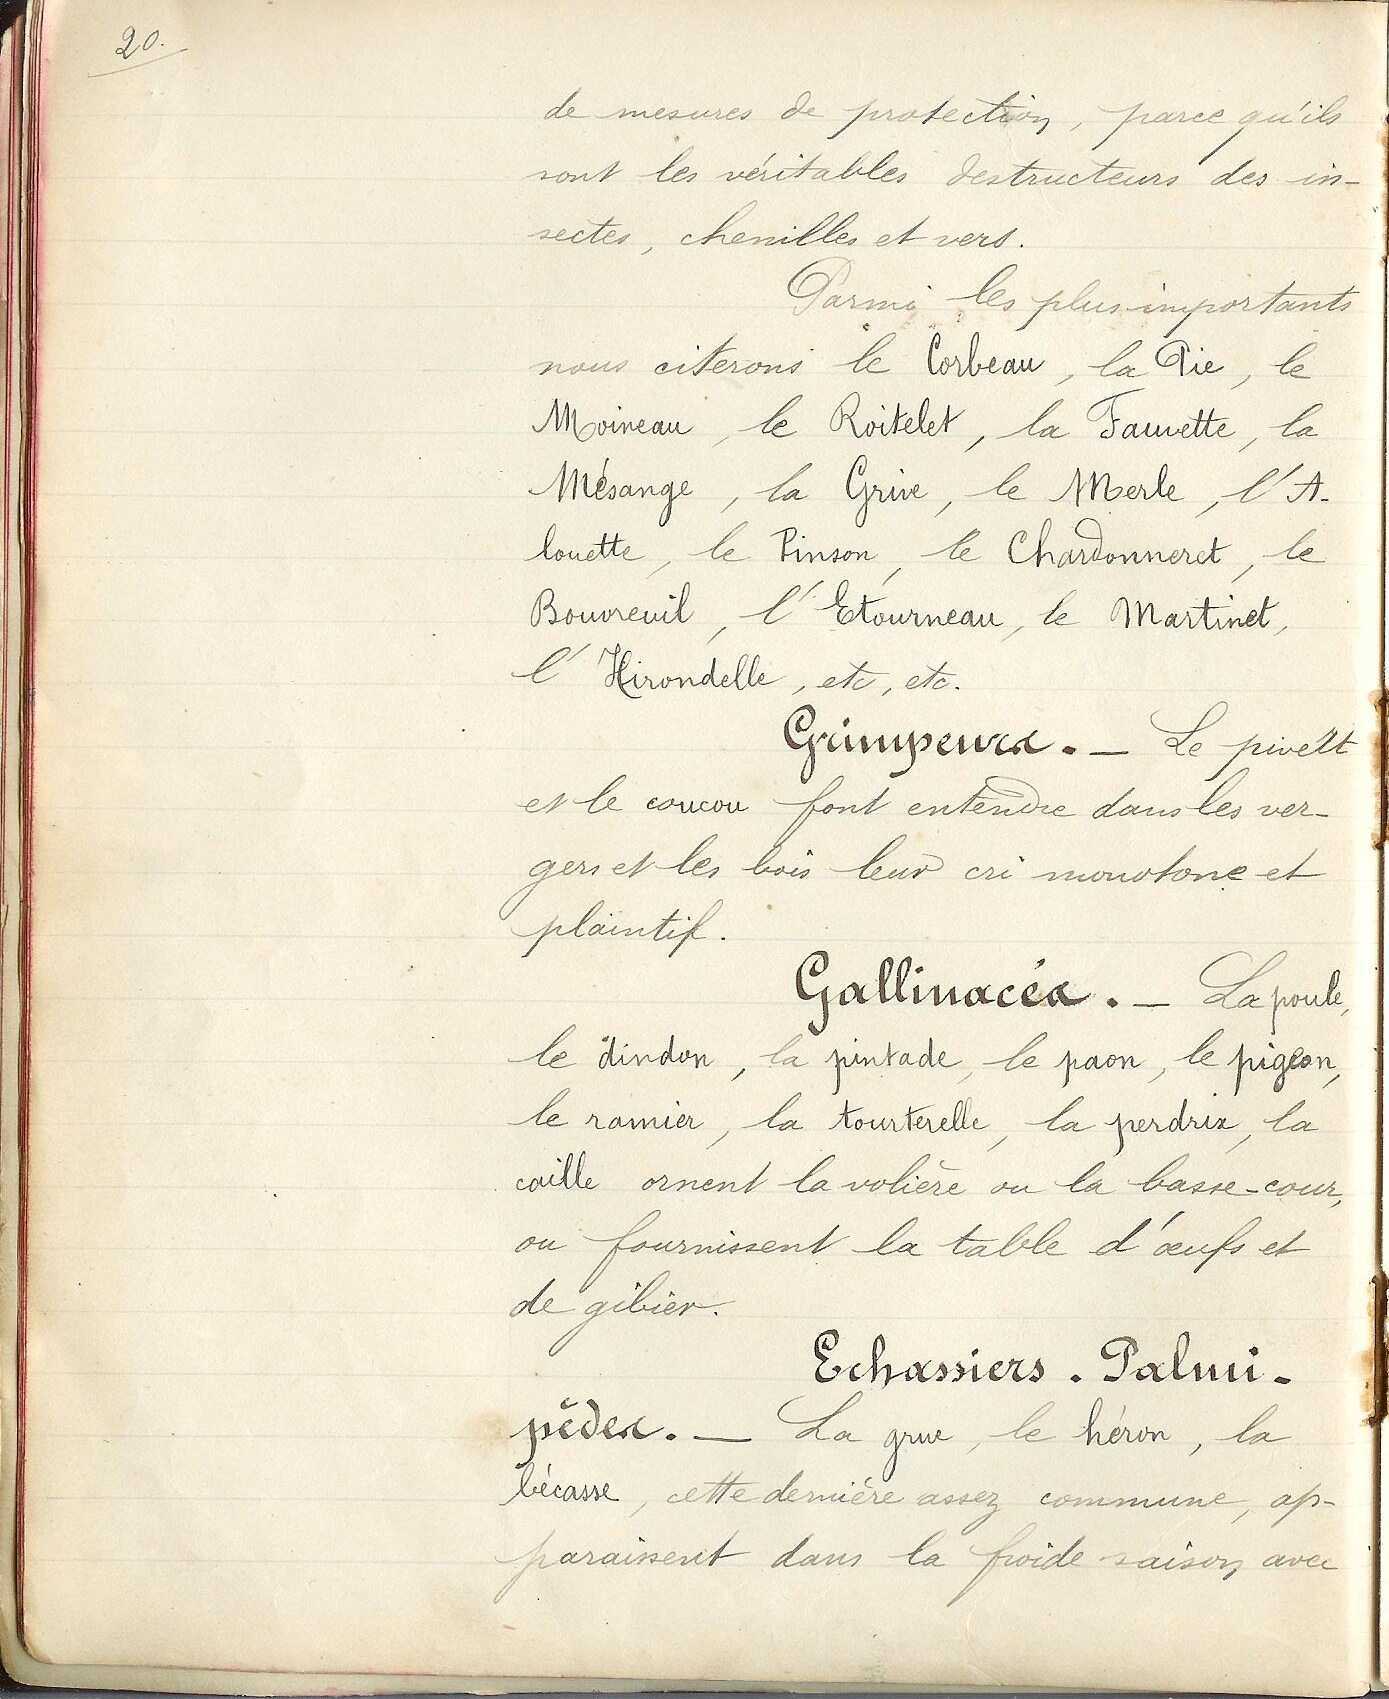 20.
de mesures de protection, parce qu'ils
sont les véritables destructeurs des in-
sectes, chenilles et vers.
Parmi les plus importants
nous citerons le Corbeau, la Pie, le
Moineau, le Roitelet, la Fauvette, la
Mésange, la Grive, le Merle, l'A-
louette, le Pinson, le Chardonneret, le
Bouvreuil, l'Etourneau, le Martinet,
l'Hirondelle, etc, etc.
Grimpeurs. — Le pivert
et le coucou font entendre dans les ver-
gers et les bois leur cri monotone et
plaintif.
Gallinacés. — La poule,
le dindon, la pintade, le paon, le pigeon,
le ramier, la tourterelle, la perdrix, la
caille ornent la volière ou la basse-cour,
ou fournissent la table d'œufs et
de gibier.
Echassiers. Palmi-
pèdes. — La grue, le héron, la
bécasse, cette dernière assez commune, ap-
paraissent dans la froide saison avec